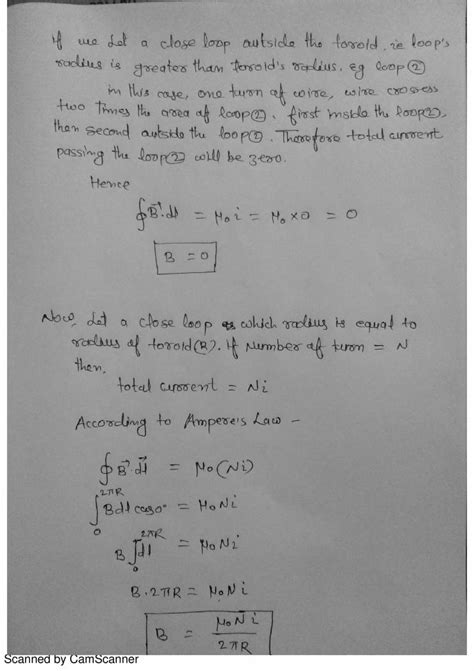 if we let a close loop outside the toroid. ie loop's
radius is greater than toroid's radius. eg loop②
in this case, one turn of wire, wire crosses
two times the area of loop②. first inside the loop②,
then second outside the loop②. Therefore total current
passing the loop② will be zero.
Hence
∮B⃗·dl = μ₀i = μ₀×0 = 0
B = 0
Now, Let a close loop which radius is equal to
radius of toroid(R). if Number of turn = N
then.
total current = Ni
According to Ampere's Law -
∮B⃗·dl⃗ = μ₀(Ni)
∫₀^2πR Bdl cos0° = μ₀Ni
B∫₀^2πR dl = μ₀Ni
B·2πR = μ₀Ni
B = μ₀Ni / 2πR
Scanned by CamScanner